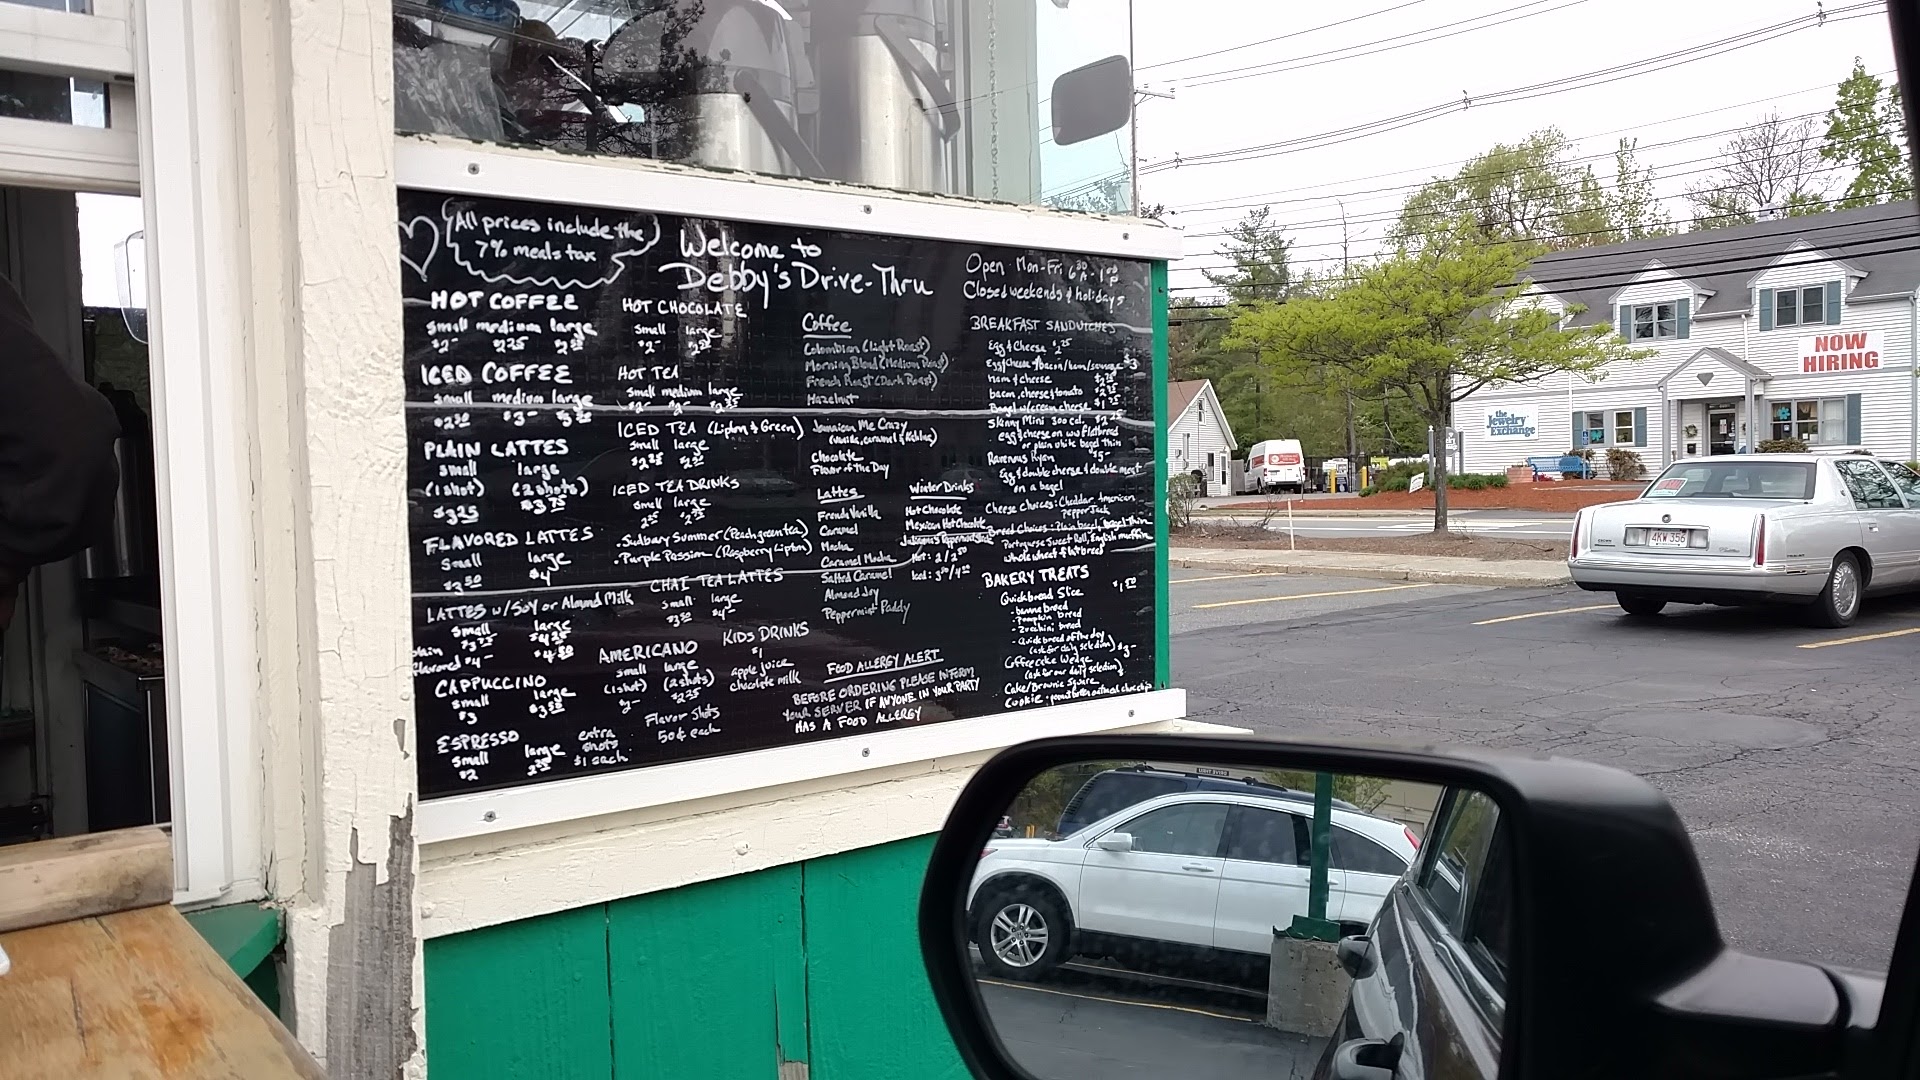 All prices include the
7% meals tax
Welcome to
Debby's Drive-Thru
Open Mon-Fri 6:30A - 1:00P
Closed weekends & holidays
HOT COFFEE
small medium large
$2- $2.25 $2.50
ICED COFFEE
small medium large
$2.50 $3-
PLAIN LATTES
small large
(1 shot) (2 shots)
$3.25 $3.75
FLAVORED LATTES
small large
$3.50 $4-
LATTES w/Soy or Almond Milk
small large
plain $3.75 $4.25
flavored $4- $4.50
CAPPUCCINO
small large
$3 $3.50
ESPRESSO
small large
$2
extra
shots
$1 each
HOT CHOCOLATE
small large
$2- $2.50
HOT TEA
small medium large
ICED TEA (Lipton & Green)
small large
ICED TEA DRINKS
small large
• Sudbury Summer (Peach green tea)
• Purple Passion (Raspberry Lipton)
CHAI TEA LATTES
small large
$3.50 $4-
AMERICANO
small large
(1 shot) (2 shots)
$2-
Flavor Shots
50¢ each
KIDS DRINKS
$1
apple juice
chocolate milk
Coffee
Colombian (Light Roast)
Morning Blend (Medium Roast)
French Roast (Dark Roast)
Hazelnut
Jamaican Me Crazy
(vanilla, caramel & Kahlua)
Chocolate
Flavor of the Day
Lattes
French Vanilla
Caramel
Mocha
Caramel Mocha
Salted Caramel
Almond Joy
Peppermint Paddy
Winter Drinks
Hot Chocolate
Mexican Hot Chocolate
Hot: 2/2.50
Iced: 3.50/4.00
FOOD ALLERGY ALERT
BEFORE ORDERING PLEASE INFORM
YOUR SERVER IF ANYONE IN YOUR PARTY
HAS A FOOD ALLERGY
BREAKFAST SANDWICHES
Egg & Cheese $2.25
Egg & Cheese w/bacon/ham/sausage $3
ham & cheese
bacon, cheese & tomato
Bagel w/cream cheese
Skinny Mini 300 cal.
egg & cheese on ww flatbread
or plain white bagel thin
Ravenous Ryan $5-
Egg & double cheese & double meat
on a bagel
Cheese Choices: Cheddar, American
Pepper Jack
Bread Choices: Plain bagel, bagel thin
Portuguese Sweet Roll, English muffin
whole wheat flatbread
BAKERY TREATS
Quickbread Slice
- banana bread
- Pumpkin bread
- Zucchini bread
- Quickbread of the day
(ask for daily selection)
Coffeecake Wedge $3-
(ask for our daily selection)
Cake/Brownie Square
Cookie: peanut butter oatmeal choc chip
NOW
HIRING
the
Jewelry
Exchange
4KW 356